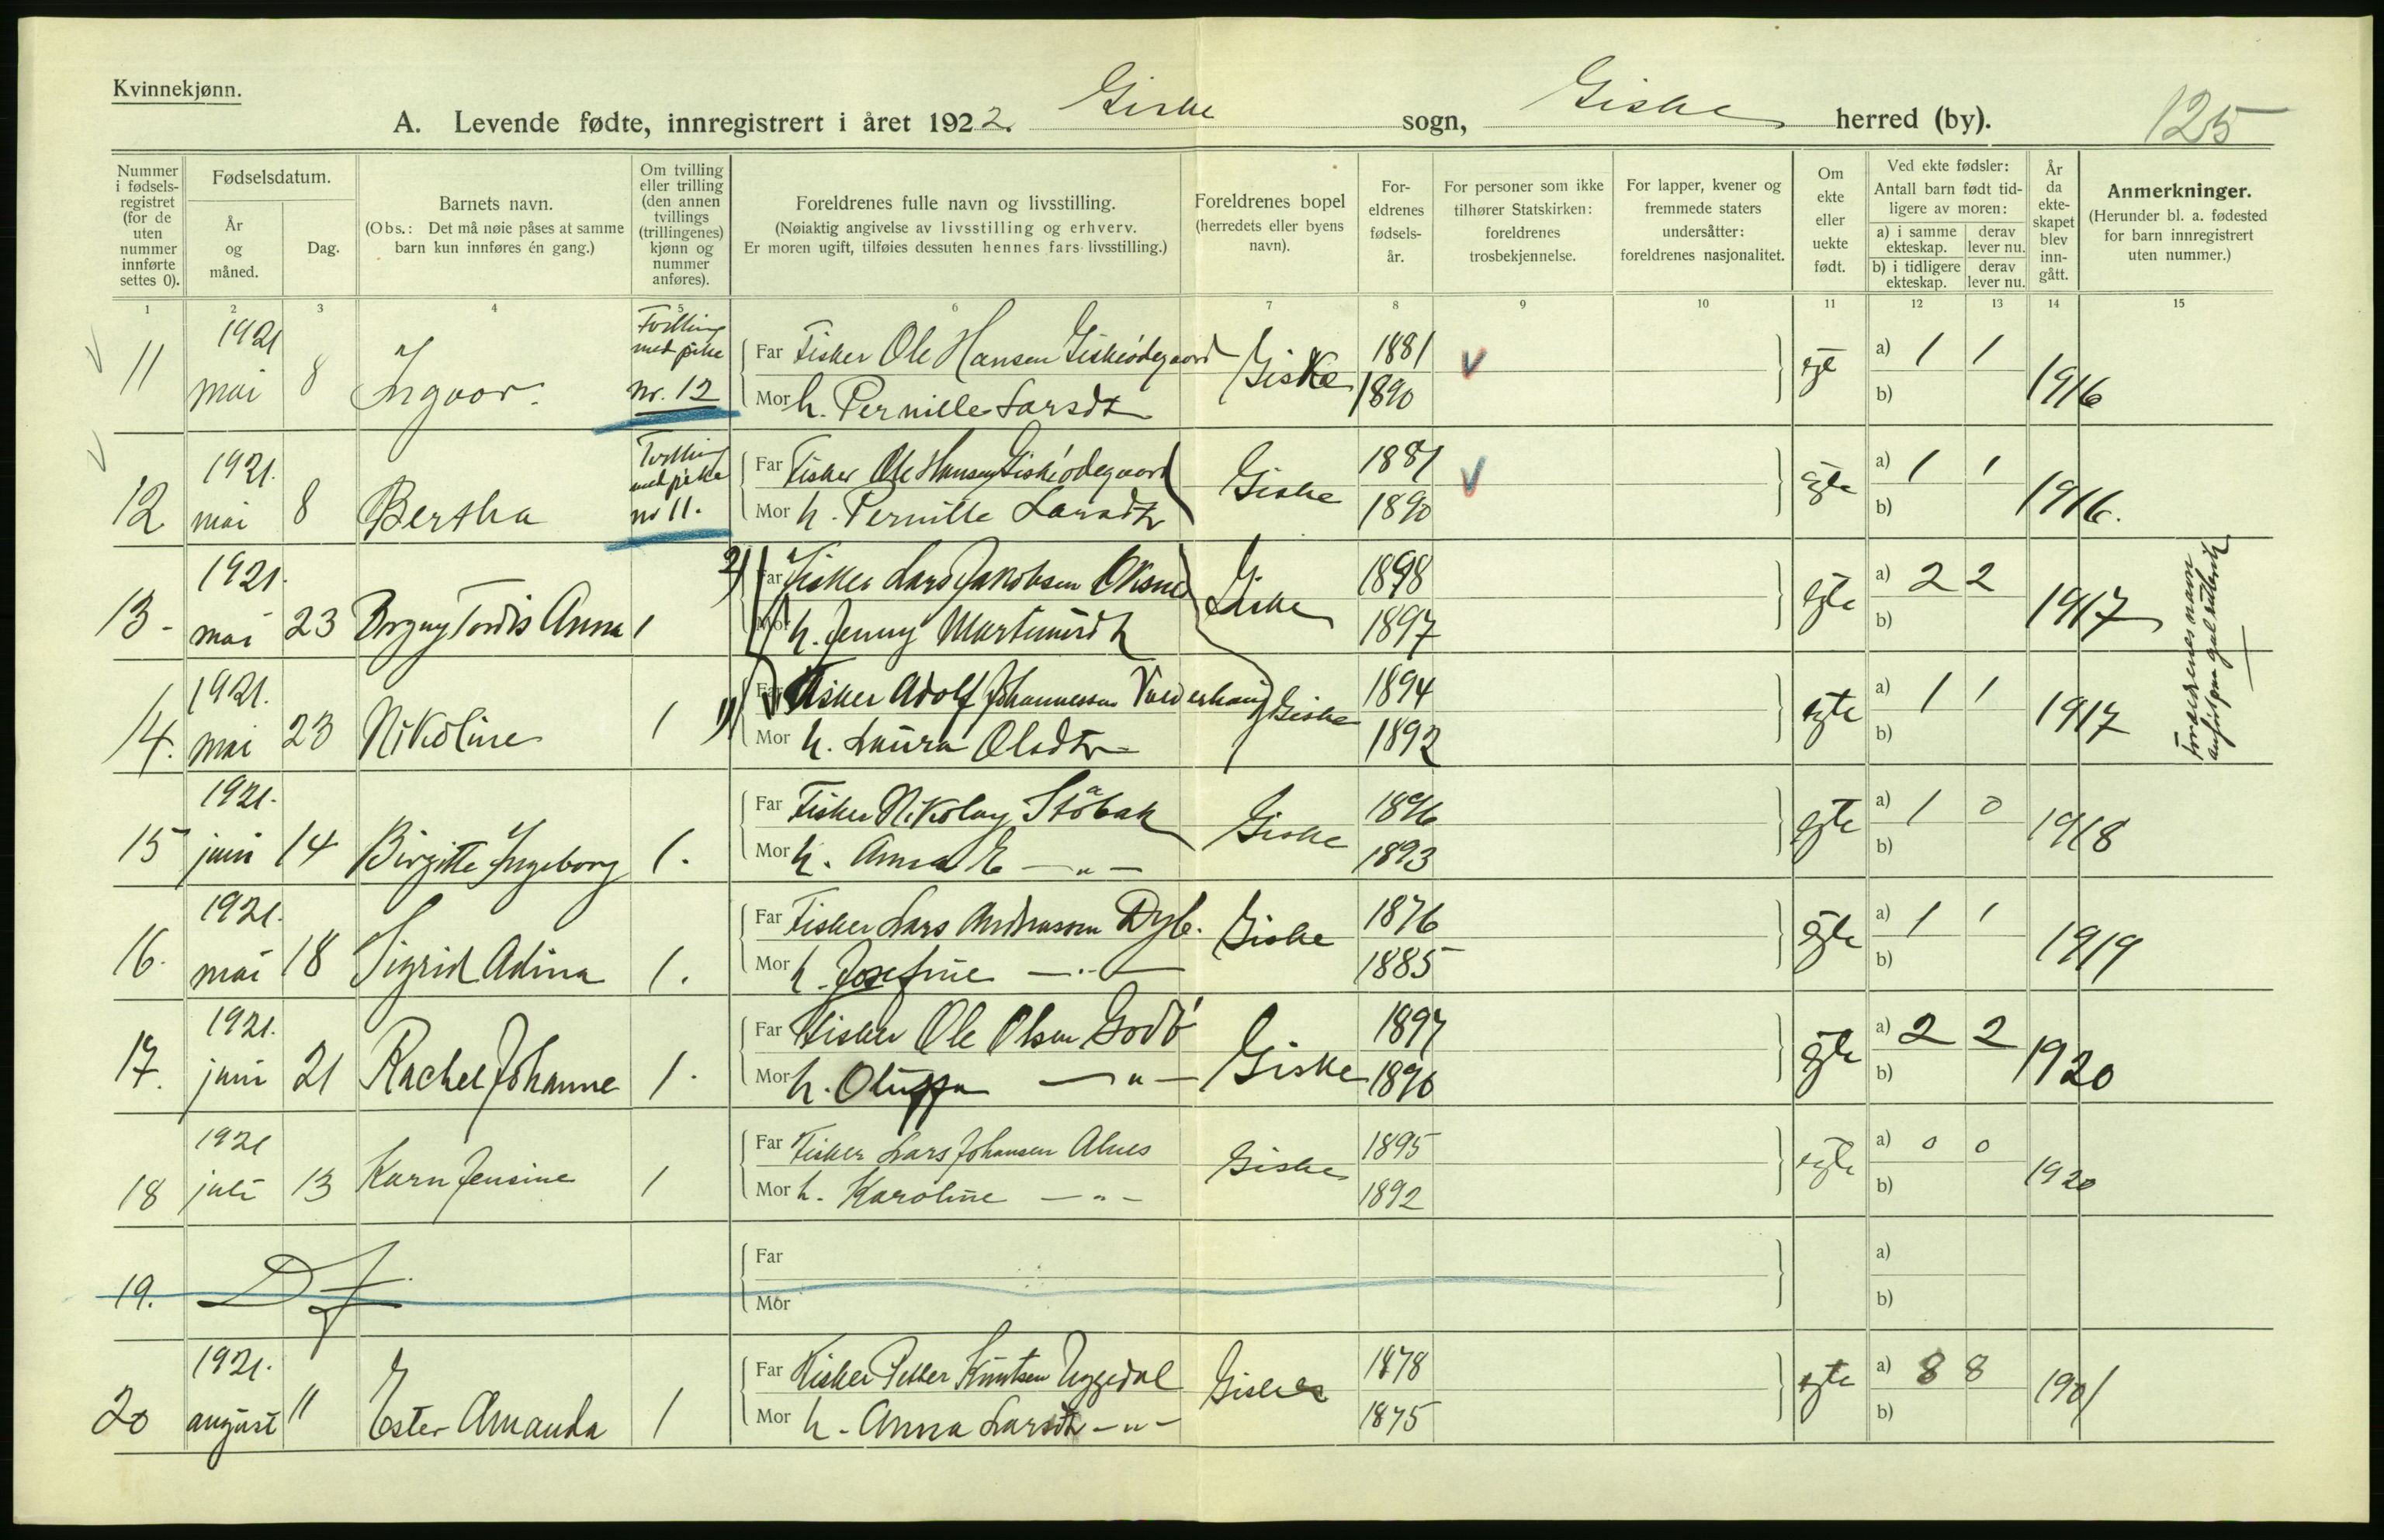 Kvinnekjønn.
A. Levende fødte, innregistrert i året 1922. Giske sogn, Giske herred (by). 125
Nummer i fødsels-registret (for de uten nummer innførte settes 0).
Fødselsdatum.
År og måned.
Dag.
Barnets navn.
(Obs.: Det må nøie påses at samme barn kun innføres én gang.)
Om tvilling eller trilling (den annen tvillings (trillingenes) kjønn og nummer anføres).
Foreldrenes fulle navn og livsstilling.
(Nøiaktig angivelse av livsstilling og erhverv.
Er moren ugift, tilføies dessuten hennes fars livsstilling.)
Foreldrenes bopel (herredets eller byens navn).
For-eldrenes fødsels-år.
For personer som ikke tilhører Statskirken: foreldrenes trosbekjennelse.
For lapper, kvener og fremmede staters undersåtter: foreldrenes nasjonalitet.
Om ekte eller uekte født.
Ved ekte fødsler:
Antall barn født tid-ligere av moren:
a) i samme ekteskap. derav lever nu.
b) i tidligere ekteskap. derav lever nu.
År da ekte-skapet blev inn-gått.
Anmerkninger.
(Herunder bl. a. fødested for barn innregistrert uten nummer.)
1 2 3 4 5 6 7 8 9 10 11 12 13 14 15
11 1921 mai 8 Ingvor. Tvilling med pike nr. 12
Far Fisker Ole Hansen Giskeødegaard Giske 1881 egte a) 1 1 1916
Mor h. Pernille Larsdt 1890 b)
12 1921. mai 8 Bertha Tvilling med pike nr 11.
Far Fisker Ole Hansen Giskeødegaard Giske 1881 egte a) 1 1 1916.
Mor h. Pernille Larsdtr 1890 b)
13- 1921. mai 23 Borgny Tordis Anna 1
2) Far Fisker Lars Jakobsen Oksnes Giske 1898 egte a) 2 2 1917
Mor h. Jenny Martinusdt 1897 b)
14. 1921. mai 23 Nikoline 1
1) Far Fisker Adolf Johannessen Valderhaug Giske 1894 egte a) 1 1 1917
Mor h. Laura Olsdtr 1892 b)
Foreldrenes navn
15 1921. juni 14 Birgitte Ingeborg 1.
Far Fisker Nikolay Støbak Giske 1896 egte a) 1 0 1918
Mor h. Anna E — " — 1893 b)
16. 1921. mai 18 Sigrid Adina 1.
Far Fisker Lars Andreassen Dyb. Giske 1876 egte a) 1 1 1919
Mor h. Josefine — " — 1885 b)
17. 1921. juni 21 Rachel Johanne 1.
Far Fisker Ole Olsen Godø Giske 1897 egte a) 2 2 1920
Mor h. Oluffa — " — 1896 b)
18 1921 juli 13 Karn Jensine 1
Far Fisker Lars Johansen Alnes Giske 1895 egte a) 0 0 1920
Mor h. Karoline — " — 1892 b)
19. Df
Far a)
Mor b)
20 1921. august 11 Ester Amanda 1
Far Fisker Petter Knutsen Uggedal Giske 1878 egte a) 8 8 1901
Mor h. Anna Larsdt — " — 1875 b)